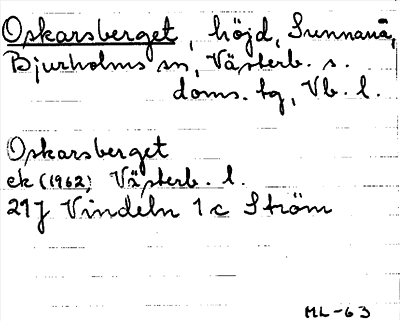 Oskarsberget, höjd, Sunnanå,
Bjurholms sn, Västerb. s.
doms. tg, Vb. l.
Oskarsberget
ek (1962) Västerb. l.
21J Vindeln 1c Ström
ML-63